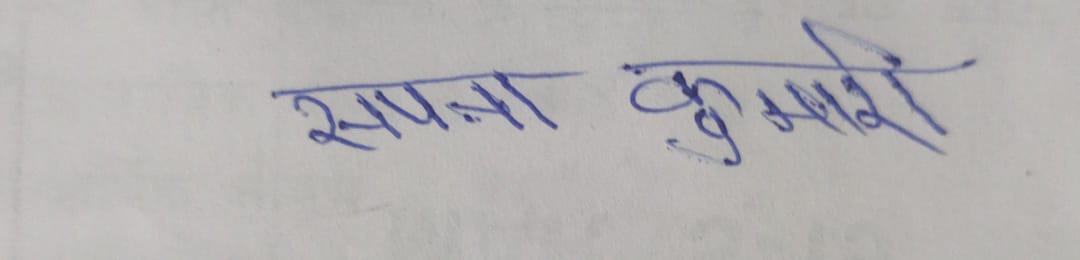 सपना कुमारी